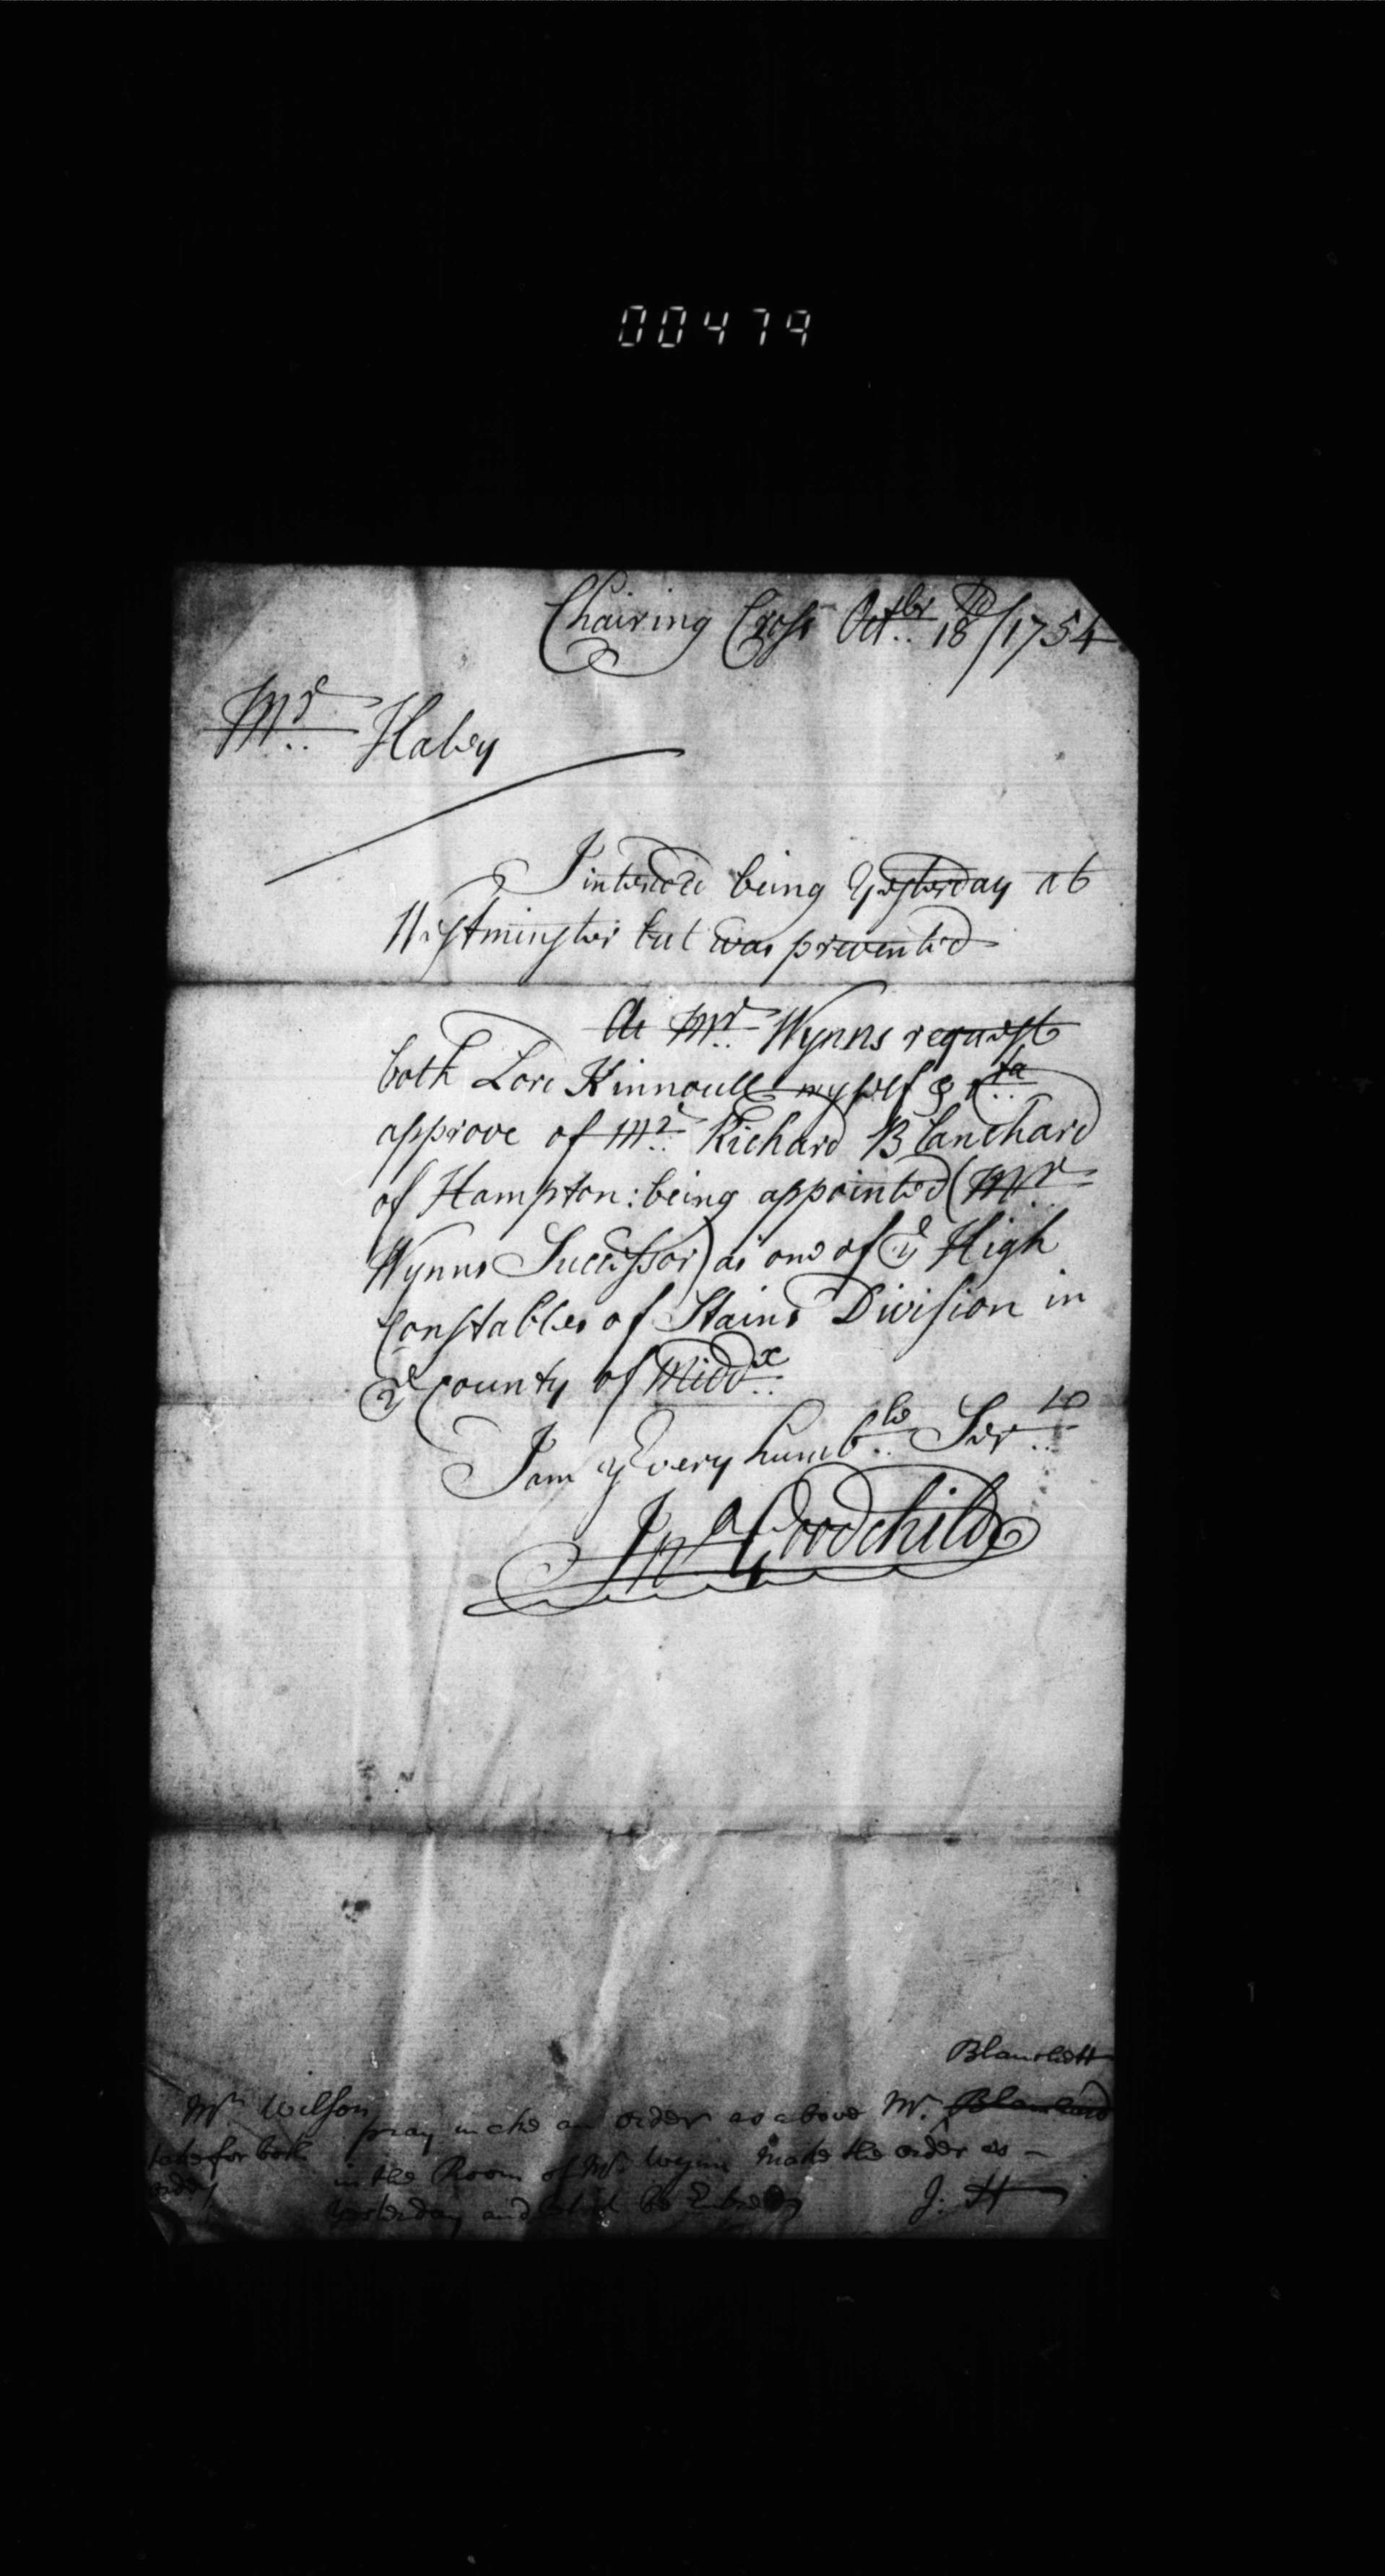 00479
Chairing Cross Octbr 18th/1754
Mr Halsey
I intended being Yesterday at
Westminster but was prevented
At Mr Wynns request
both Lord Kinnoull myself &ca
approve of Mr Richard Blanchard
of Hampton: being appointed (Mr
Wynns Successor) as one of ye High
Constables of Stains Division in
ye County of Middx
I am yr very humble Servt
Jno Goodchild
Blanchett
Mr Wilson
pray make an order as above Mr. Blanchard
in the Room of Mr. Wynne make the order as
Yesterday and
J. H